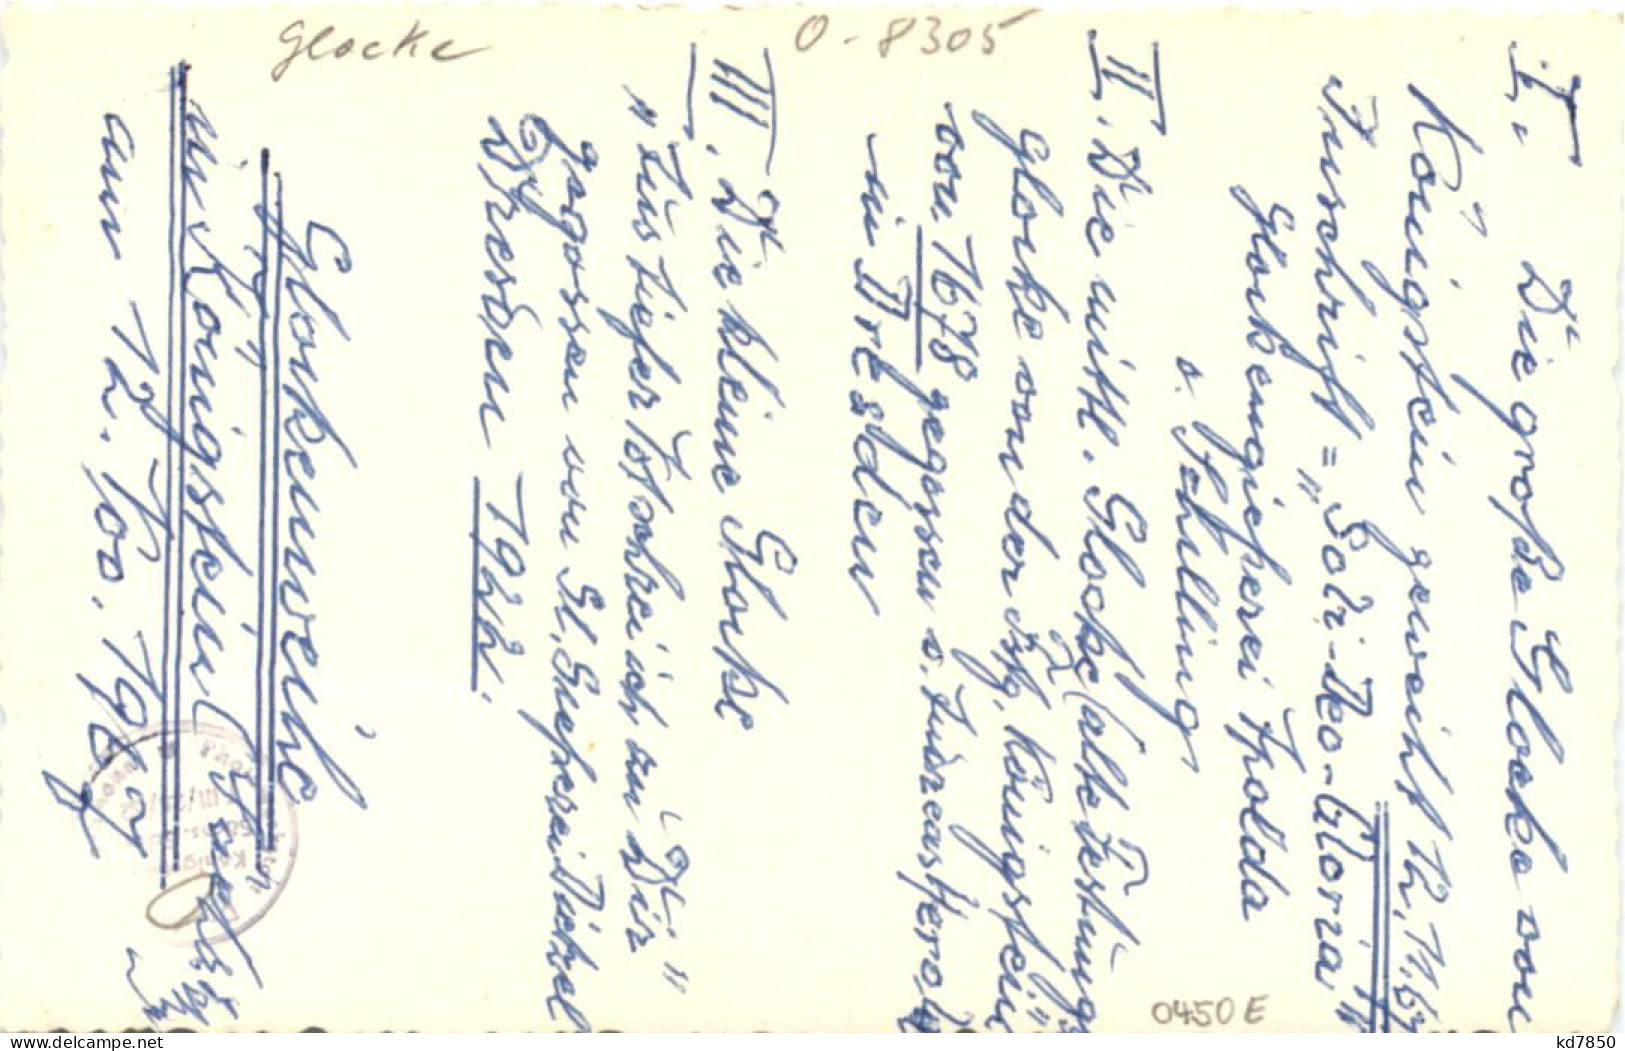 Glocke
O-8305
I. Die große Glocke von
Königstein geweiht 12.11.67
Inschrift = „Soli-Deo-Gloria"
Glockengießerei Apolda
v. Schilling
II. Die mittl. Glocke (alte Festungs
Glocke von der Fstg. Königstein
von 1678 gegossen v. Andreas Herold
in Dresden
III. Die kleine Glocke
„Aus tiefer Not schrei ich zu Dir"
gegossen von Gl. Gießerei Bierling
Dresden 1922.
Glockenweihe
in Königstein
am 12.
0450 E
delcampe.net
kd7850